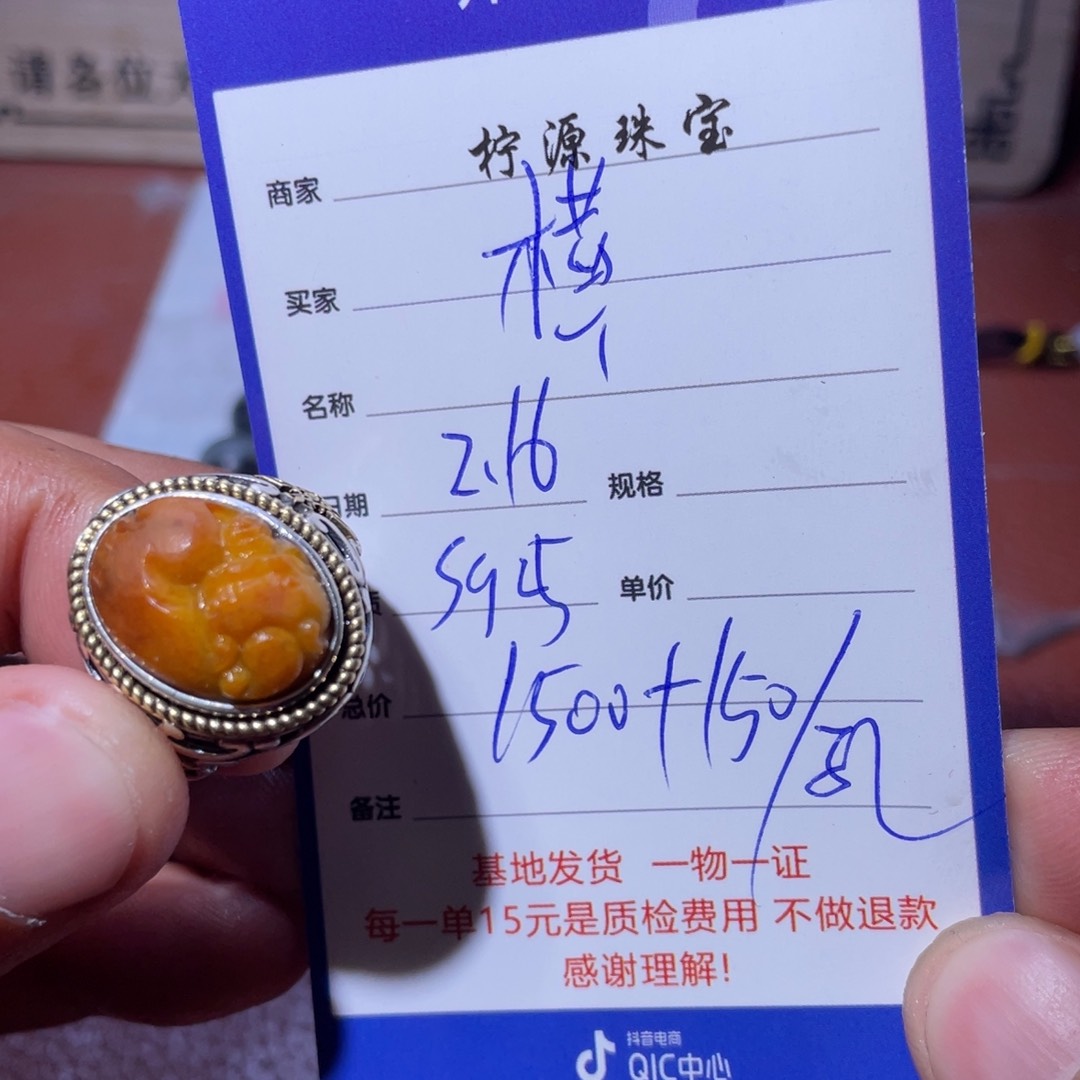 请各位
商家 柠源珠宝
买家 横
名称
日期 2.16 规格
单价
总价 1500+150/
备注
基地发货 一物一证
每一单15元是质检费用 不做退款
感谢理解!
抖音电商
QIC中心